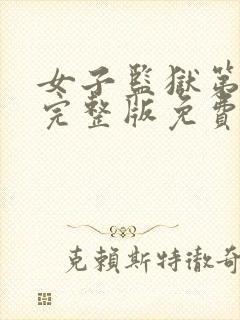 女子監獄第
完整版免費
克賴斯特徹奇